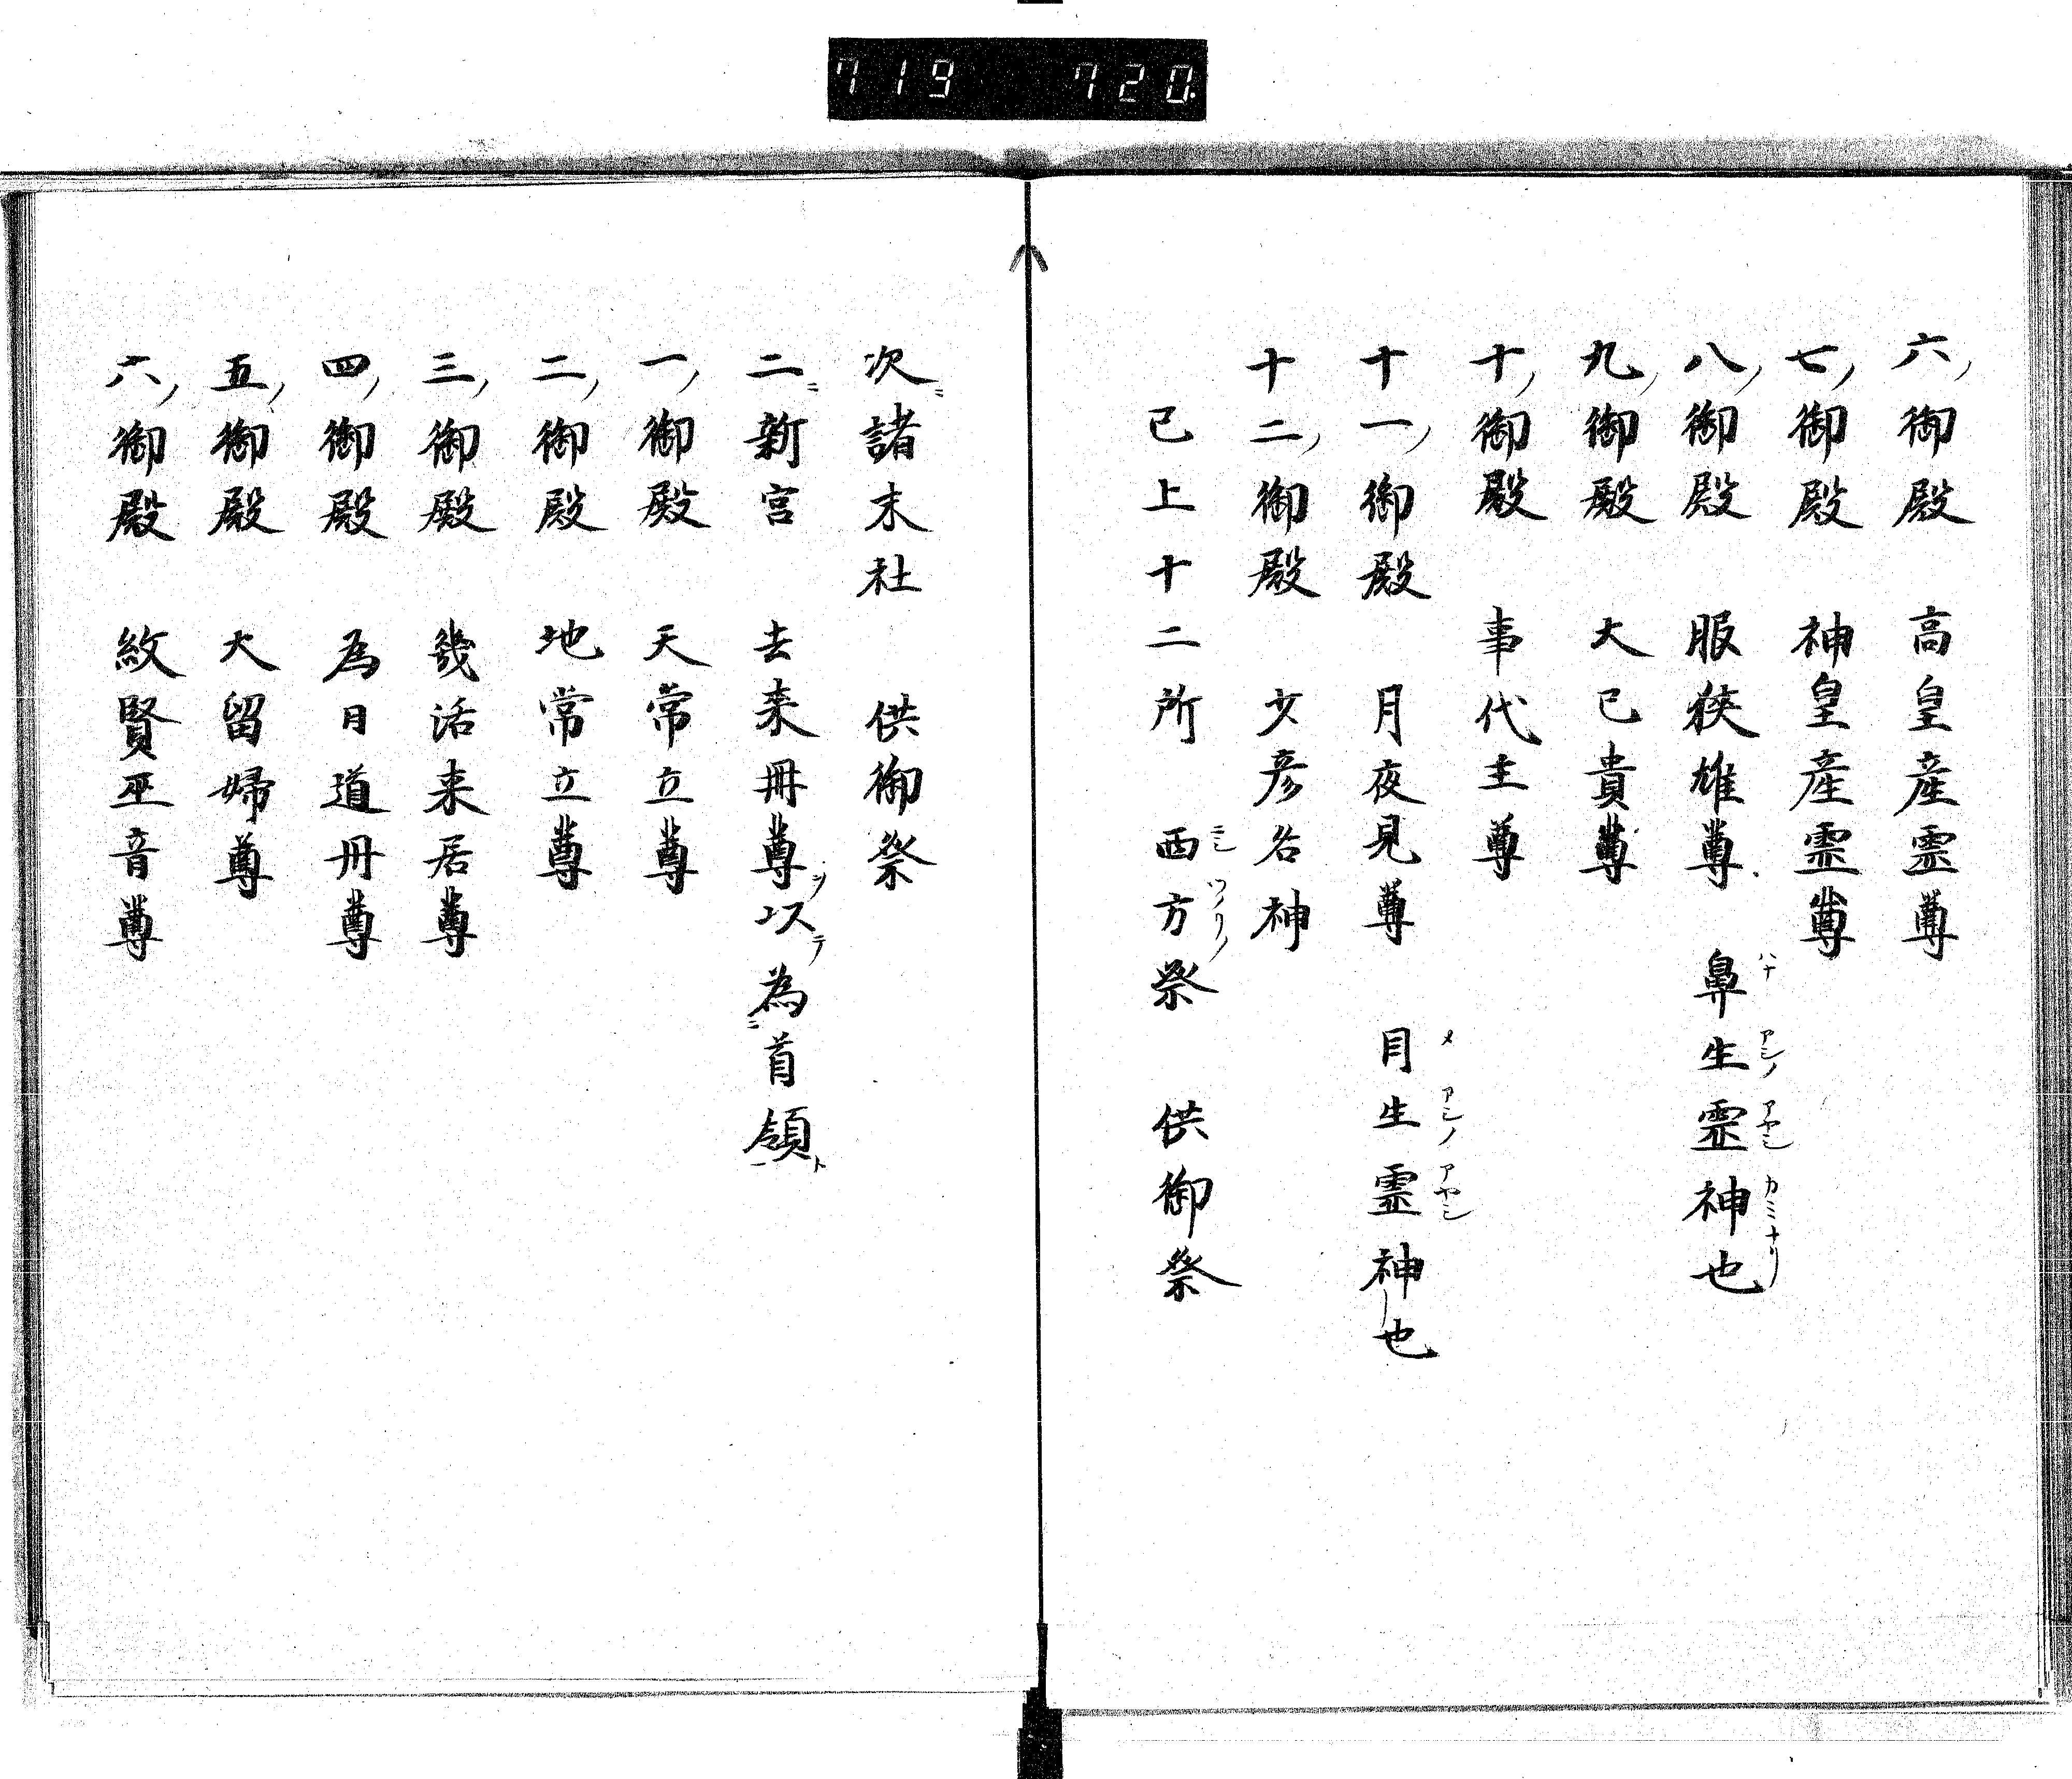 719 720
六ノ御殿 高皇産霊尊
七ノ御殿 神皇産霊尊
八ノ御殿 服狭雄尊 鼻生霊神也
ハナ アシノ アヤシ カミナリ
九ノ御殿 大已貴尊
十ノ御殿 事代主尊
十一ノ御殿 月夜見尊 目生霊神也
メ アシノ アヤシ
十二ノ御殿 少彦名神
已上十二所 西方祭 供御祭
次ニ諸末社 供御祭
二ニ新宮 去来冊尊ヲ以テ為ニ首領ト一
一ノ御殿 天常立尊
二ノ御殿 地常立尊
三ノ御殿 幾活来居尊
四ノ御殿 為日道冊尊
五ノ御殿 大留婦尊
六ノ御殿 紋賢巫音尊